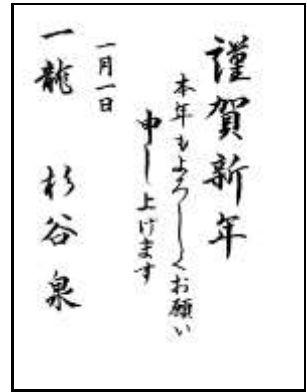 謹賀新年
本年もよろしくお願い
申し上げます
一月一日
一龍　杉谷泉